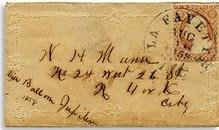 LA FAYETTE
AUG
N H Munn
No 24 West 26 St
N York
City
Balloon Jupiter
1859